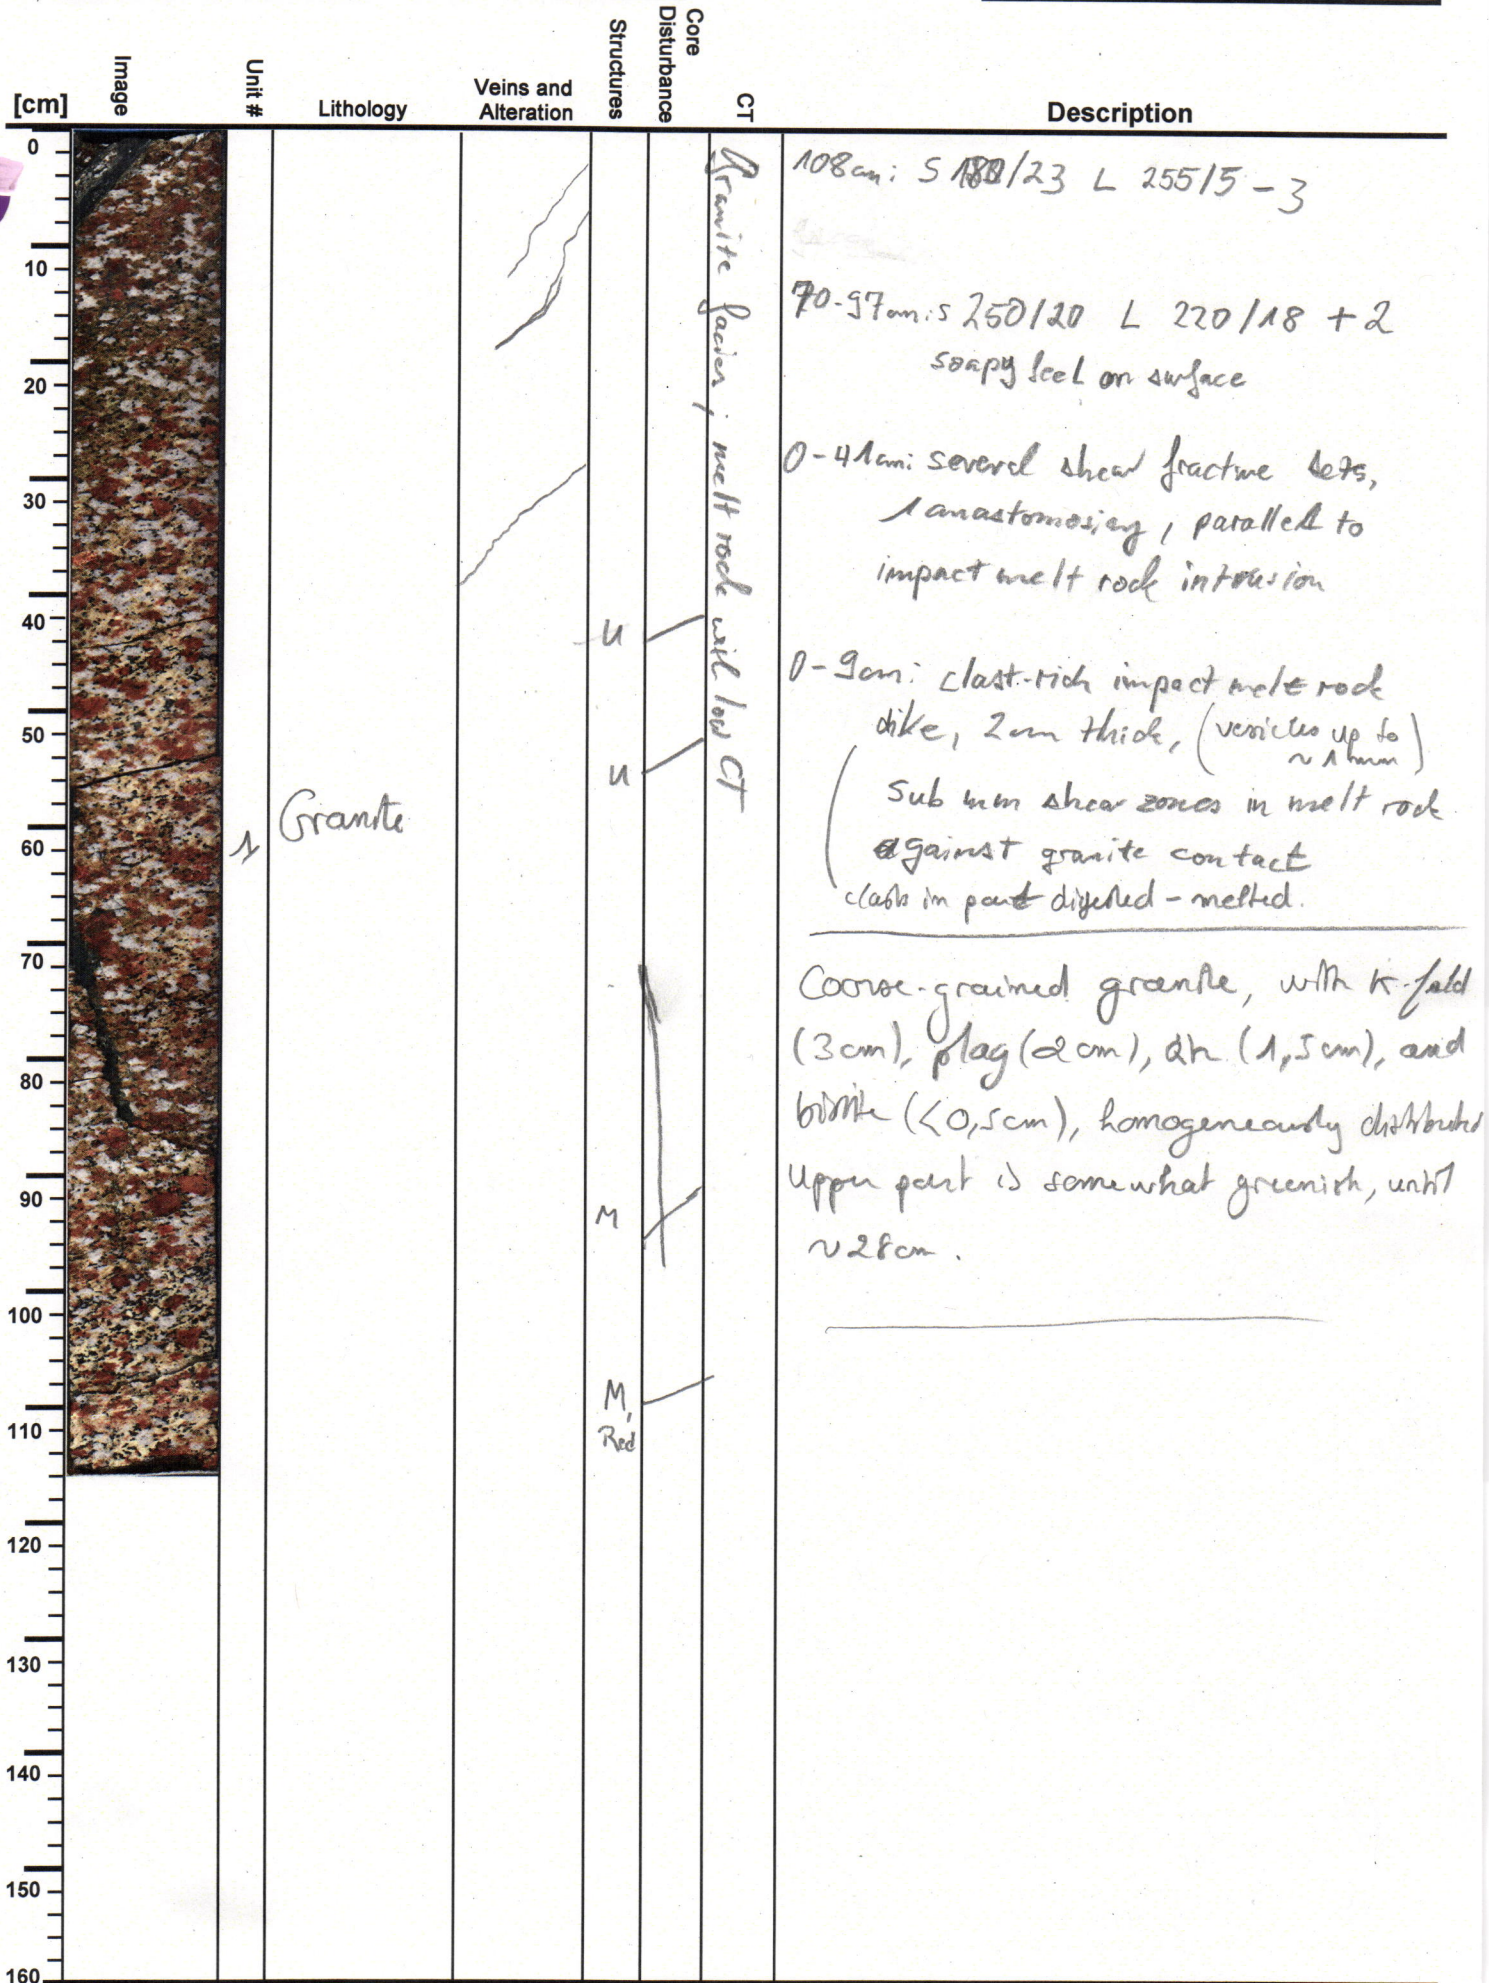 [cm]
Image
Unit #
Lithology
Veins and
Alteration
Structures
Core
Disturbance
CT
Description
0
10
20
30
40
50
60
70
80
90
100
110
120
130
140
150
160
1
Granite
U
U
M
M,
Red
Granite facies; melt rock with low CT
108cm: S /23 L 255/5 - 3
70-97cm: S 250/20 L 220/18 + 2
soapy feel on surface
0-41cm: several shear fracture sets,
1 anastomosing, parallel to
impact melt rock intrusion
0-9cm: clast-rich impact melt rock
dike, 2cm thick, (vesicles up to
~ 1mm)
sub mm shear zones in melt rock
against granite contact
clasts in part digested - melted.
Coarse-grained granite, with K-feld
(3cm), plag (2cm), (1,5cm), and
biotite (<0,5cm), homogeneously distributed
Upper part is somewhat greenish, until
~28cm.